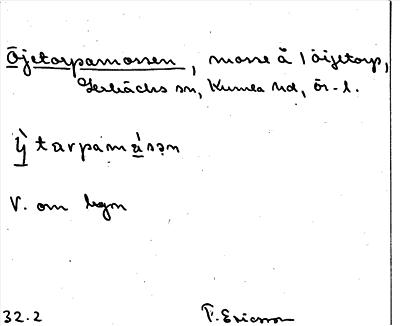 Öjetorpamossen, mosse å 1 Öijetorp,
Lerbäcks sn, Kumla hd, Ör.-l.
ỳ tarpamásən
V. om byn
32.2 F. Ericsson